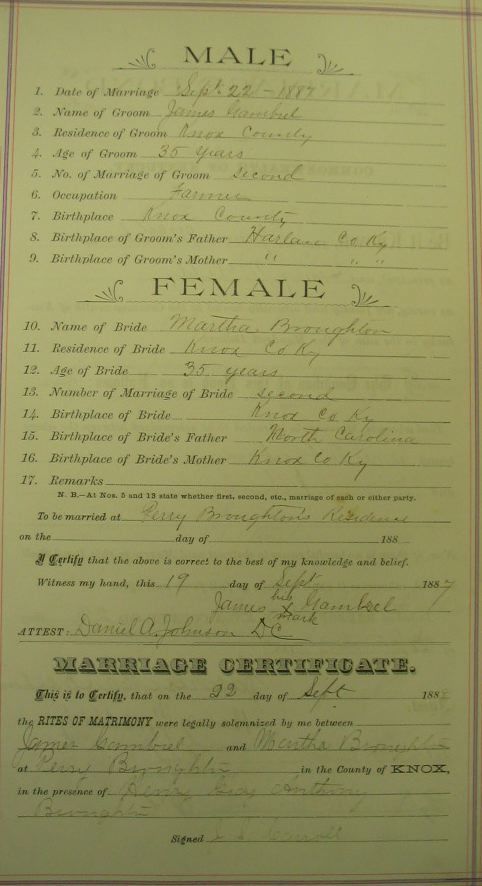 MALE
1. Date of Marriage Sept 22 - 1887
2. Name of Groom James Gambrel
3. Residence of Groom Knox County
4. Age of Groom 35 Years
5. No. of Marriage of Groom second
6. Occupation Farmer
7. Birthplace Knox County
8. Birthplace of Groom's Father Harlan Co Ky
9. Birthplace of Groom's Mother " " "
FEMALE
10. Name of Bride Martha Broughton
11. Residence of Bride Knox Co Ky
12. Age of Bride 35 years
13. Number of Marriage of Bride second
14. Birthplace of Bride Knox Co Ky
15. Birthplace of Bride's Father North Carolina
16. Birthplace of Bride's Mother Knox Co Ky
17. Remarks
N. B.—At Nos. 5 and 13 state whether first, second, etc., marriage of each or either party.
To be married at Perry Broughton's Residence
on the day of 188
I Certify that the above is correct to the best of my knowledge and belief.
Witness my hand, this 19 day of Sept 1887
James his X mark Gambrel
ATTEST: Daniel A. Johnson DC
MARRIAGE CERTIFICATE.
This is to Certify, that on the 22 day of Sept 188
the RITES OF MATRIMONY were legally solemnized by me between
James Gambrel and Martha Broughton
at Perry Broughton in the County of KNOX,
in the presence of Henry Anthony
Broughton
Signed